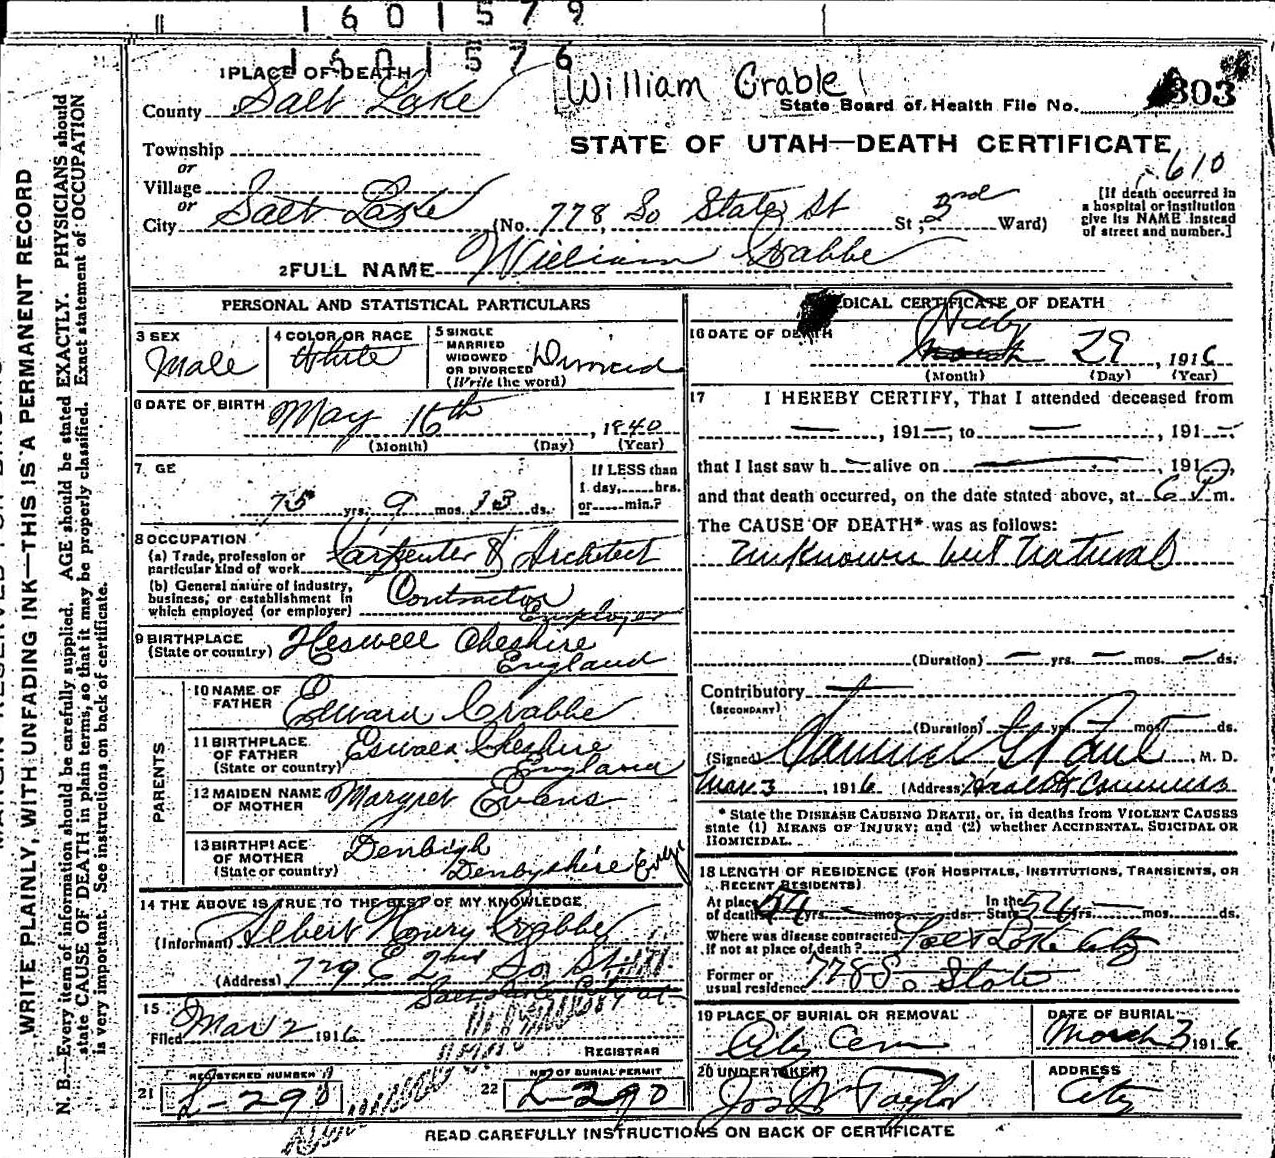 1601579
1601576
William Crable
1 PLACE OF DEATH
County Salt Lake
State Board of Health File No. 303
STATE OF UTAH—DEATH CERTIFICATE
610
Township
or
Village
or
City Salt Lake (No. 778 So State St St; 3rd Ward)
[If death occurred in a hospital or institution give its NAME instead of street and number.]
2 FULL NAME William Crabbe
PERSONAL AND STATISTICAL PARTICULARS
3 SEX Male
4 COLOR OR RACE White
5 SINGLE MARRIED WIDOWED OR DIVORCED (Write the word) Divorced
6 DATE OF BIRTH May 16th, 1840
(Month) (Day) (Year)
7 GE 75 yrs. 9 mos. 13 ds.
If LESS than 1 day, hrs. or min.?
8 OCCUPATION
(a) Trade, profession or particular kind of work Carpenter & Architect
(b) General nature of industry, business, or establishment in which employed (or employer) Contractor Employer
9 BIRTHPLACE (State or country) Heswell Cheshire England
PARENTS
10 NAME OF FATHER Edward Crabbe
11 BIRTHPLACE OF FATHER (State or country) Cheshire England
12 MAIDEN NAME OF MOTHER Margret Evens
13 BIRTHPLACE OF MOTHER (State or country) Denbigh Denbyshire Eng
14 THE ABOVE IS TRUE TO THE BEST OF MY KNOWLEDGE
(Informant) Albert Henry Crabbe
(Address) 729 E 2nd So St
Salt Lake City
15 Filed Mar 2 1916
REGISTRAR
21 REGISTERED NUMBER L-290
22 NO. OF BURIAL PERMIT L-290
MEDICAL CERTIFICATE OF DEATH
16 DATE OF DEATH Feby 29, 1916
(Month) (Day) (Year)
17 I HEREBY CERTIFY, That I attended deceased from
— , 191—, to — , 191—
that I last saw h— alive on — , 191—,
and that death occurred, on the date stated above, at 6 P m.
The CAUSE OF DEATH* was as follows:
Unknown but natural
(Duration) — yrs. — mos. — ds.
Contributory —
(SECONDARY)
(Duration) yrs. mos. ds.
(Signed) Samuel G Paul M. D.
Mar 3, 1916 (Address) Health Commiss
* State the DISEASE CAUSING DEATH, or, in deaths from VIOLENT CAUSES
state (1) MEANS OF INJURY; and (2) whether ACCIDENTAL, SUICIDAL OR
HOMICIDAL.
18 LENGTH OF RESIDENCE (FOR HOSPITALS, INSTITUTIONS, TRANSIENTS, OR
RECENT RESIDENTS)
At place of death 54 yrs. — mos. ds. In the State 54 yrs. — mos. ds.
Where was disease contracted if not at place of death? Salt Lake City
Former or usual residence 778 So State
19 PLACE OF BURIAL OR REMOVAL City Cem
DATE OF BURIAL March 3 1916
20 UNDERTAKER Jos Wm Taylor
ADDRESS City
READ CAREFULLY INSTRUCTIONS ON BACK OF CERTIFICATE
WRITE PLAINLY, WITH UNFADING INK—THIS IS A PERMANENT RECORD
N. B.—Every item of information should be carefully supplied. AGE should be stated EXACTLY. PHYSICIANS should
state CAUSE OF DEATH in plain terms, so that it may be properly classified. Exact statement of OCCUPATION
is very important. See instructions on back of certificate.